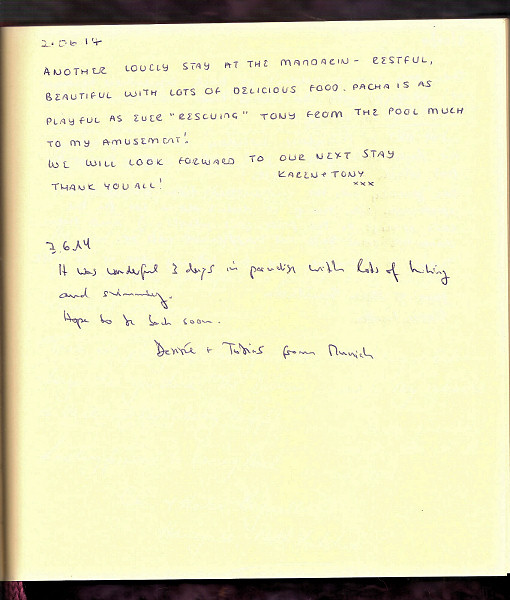 2.06.14
ANOTHER LOVELY STAY AT THE MANDARIN - RESTFUL,
BEAUTIFUL WITH LOTS OF DELICIOUS FOOD. PACHA IS AS
PLAYFUL AS EVER "RESCUING" TONY FROM THE POOL MUCH
TO MY AMUSEMENT!
WE WILL LOOK FORWARD TO OUR NEXT STAY
THANK YOU ALL!
KAREN + TONY
xxx
7.6.14
It was wonderful 3 days in paradise with lots of hiking
and swimming.
Hope to be back soon.
Desirée + Tobias from Munich